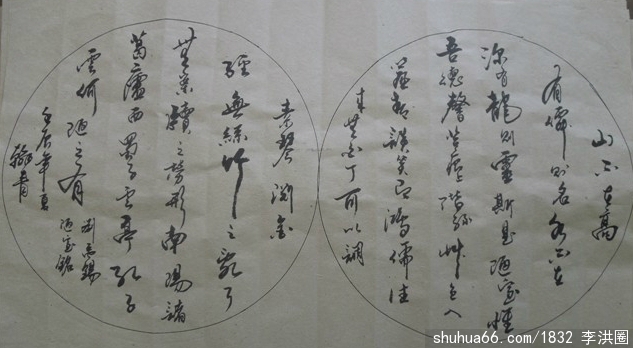 山不在高
有仙則名水不在
深有龍則靈斯是陋室惟
吾德馨苔痕階綠艸色入
簾青談笑有鴻儒往
來無白丁可以調
素琴閱金
經無絲竹之亂耳
無案牘之勞形南陽諸
葛廬西蜀子雲亭孔子
雲何陋之有
劉禹錫
陋室銘
壬辰年夏
shuhua66.com/1832 李洪圈